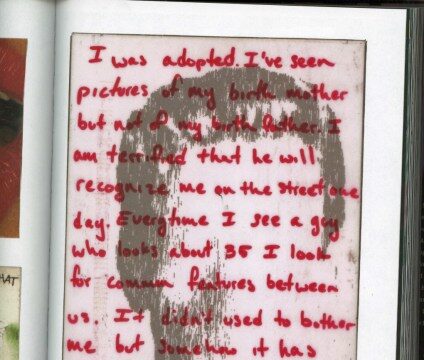 I was adopted. I've seen
pictures of my birth mother
but not of my birth father. I
am terrified that he will
recognize me on the street one
day. Everytime I see a guy
who looks about 35 I look
for common features between
us. It didn't used to bother
me but somehow it has
HAT